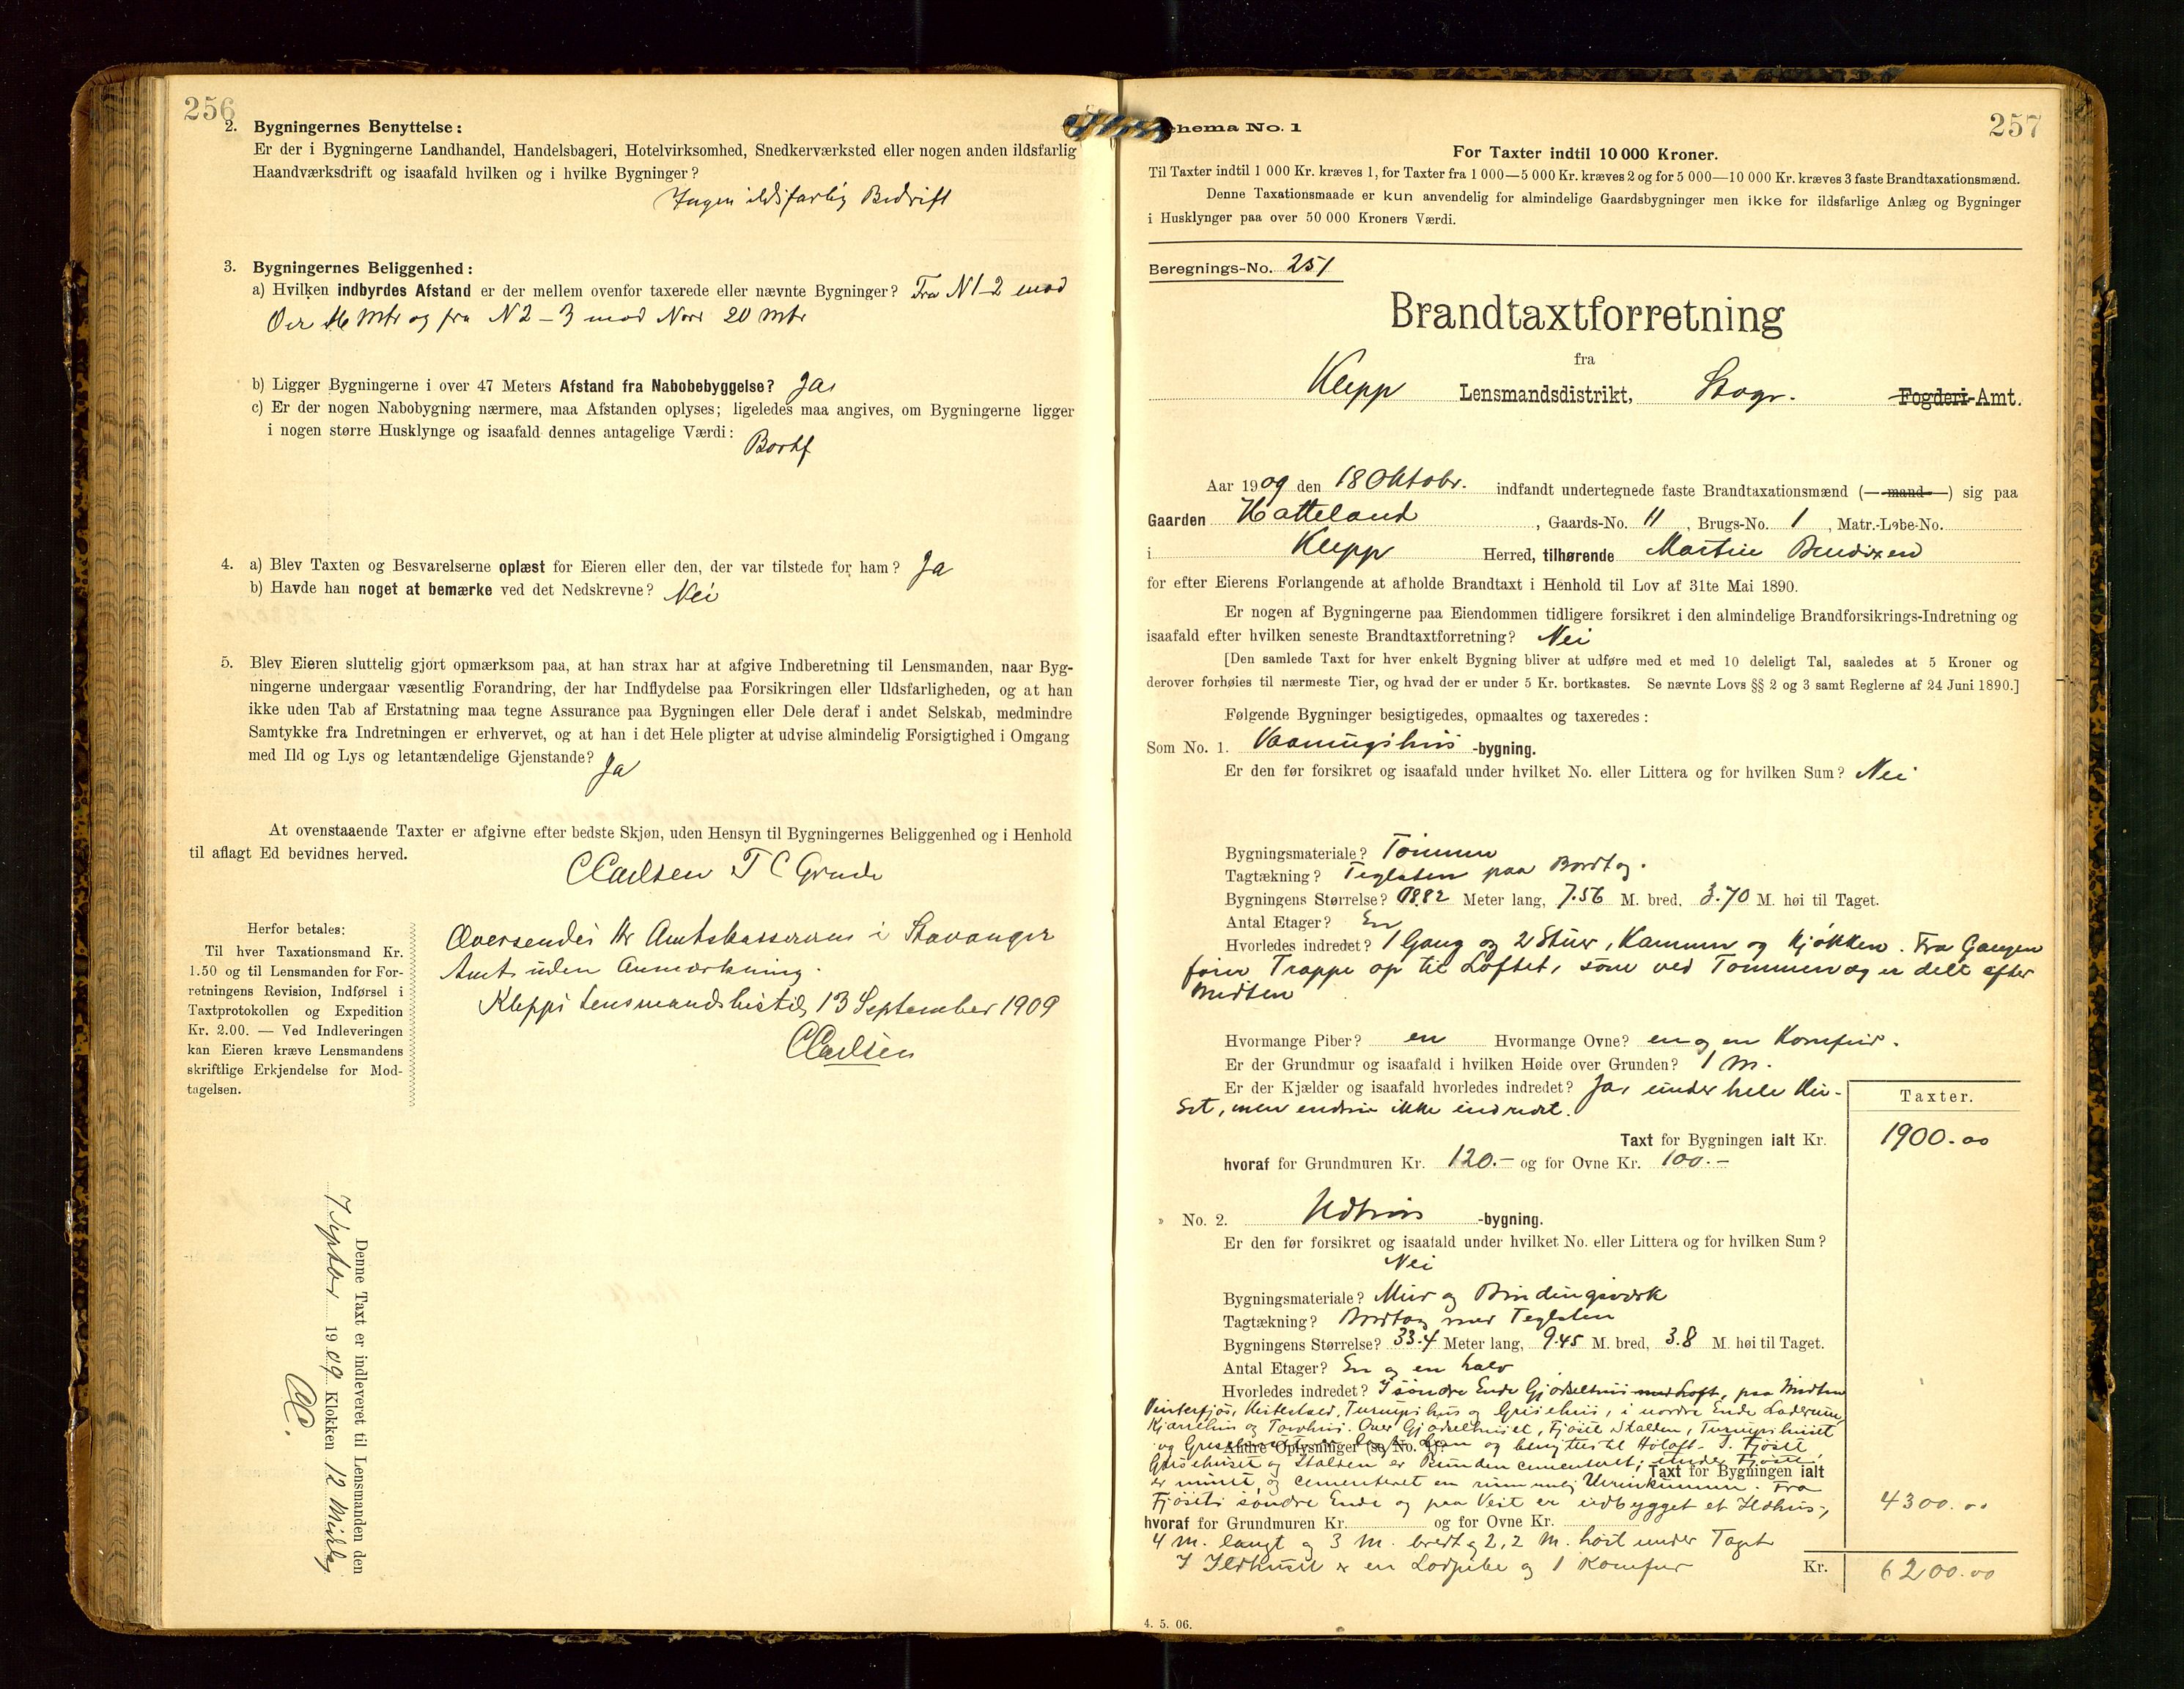 256
2. Bygningernes Benyttelse:
Er der i Bygningerne Landhandel, Handelsbageri, Hotelvirksomhed, Snedkerværksted eller nogen anden ildsfarlig
Haandværksdrift og isaafald hvilken og i hvilke Bygninger?
Ingen ildsfarlig Bedrift
3. Bygningernes Beliggenhed:
a) Hvilken indbyrdes Afstand er der mellem ovenfor taxerede eller nævnte Bygninger? Fra N 1-2 mod
16 Mtr og fra N 2-3 mod Nord 20 Mtr
b) Ligger Bygningerne i over 47 Meters Afstand fra Nabobebyggelse? Ja
c) Er der nogen Nabobygning nærmere, maa Afstanden oplyses; ligeledes maa angives, om Bygningerne ligger
i nogen større Husklynge og isaafald dennes antagelige Værdi: Bortf
4. a) Blev Taxten og Besvarelserne oplæst for Eieren eller den, der var tilstede for ham? Ja
b) Havde han noget at bemærke ved det Nedskrevne? Nei
5. Blev Eieren sluttelig gjort opmærksom paa, at han strax har at afgive Indberetning til Lensmanden, naar Byg-
ningerne undergaar væsentlig Forandring, der har Indflydelse paa Forsikringen eller Ildsfarligheden, og at han
ikke uden Tab af Erstatning maa tegne Assurance paa Bygningen eller Dele deraf i andet Selskab, medmindre
Samtykke fra Indretningen er erhvervet, og at han i det Hele pligter at udvise almindelig Forsigtighed i Omgang
med Ild og Lys og letantændelige Gjenstande? Ja
At ovenstaaende Taxter er afgivne efter bedste Skjøn, uden Hensyn til Bygningernes Beliggenhed og i Henhold
til aflagt Ed bevidnes herved.
C Carlsen T C Grude
Herfor betales:
Til hver Taxationsmand Kr.
1.50 og til Lensmanden for For-
retningens Revision, Indførsel i
Taxtprotokollen og Expedition
Kr. 2.00. — Ved Indleveringen
kan Eieren kræve Lensmandens
skriftlige Erkjendelse for Mod-
tagelsen.
Oversendes Hr Amtskassereren i Stavanger
Amt uden Anmærkning.
Klepps Lensmandsbestil, 13 September 1909
C Carlsen
Denne Taxt er indleveret til Lensmanden den
7 Septbr 1909 Klokken 12 Middag
CC.
Schema No. 1
257
For Taxter indtil 10 000 Kroner.
Til Taxter indtil 1 000 Kr. kræves 1, for Taxter fra 1 000—5 000 Kr. kræves 2 og for 5 000—10 000 Kr. kræves 3 faste Brandtaxationsmænd.
Denne Taxationsmaade er kun anvendelig for almindelige Gaardsbygninger men ikke for ildsfarlige Anlæg og Bygninger
i Husklynger paa over 50 000 Kroners Værdi.
Beregnings-No. 251
Brandtaxtforretning
fra
Klepp Lensmandsdistrikt, Stvgr. Fogderi-Amt.
Aar 1909 den 18 Oktobr. indfandt undertegnede faste Brandtaxationsmænd (— mand —) sig paa
Gaarden Hatteland, Gaards-No. 11, Brugs-No. 1, Matr.-Løbe-No.
i Klepp Herred, tilhørende Martin Bendixen
for efter Eierens Forlangende at afholde Brandtaxt i Henhold til Lov af 31te Mai 1890.
Er nogen af Bygningerne paa Eiendommen tidligere forsikret i den almindelige Brandforsikrings-Indretning og
isaafald efter hvilken seneste Brandtaxtforretning? Nei
[Den samlede Taxt for hver enkelt Bygning bliver at udføre med et med 10 deleligt Tal, saaledes at 5 Kroner og
derover forhøies til nærmeste Tier, og hvad der er under 5 Kr. bortkastes. Se nævnte Lovs §§ 2 og 3 samt Reglerne af 24 Juni 1890.]
Følgende Bygninger besigtigedes, opmaaltes og taxeredes:
Som No. 1. Vaaningshus -bygning.
Er den før forsikret og isaafald under hvilket No. eller Littera og for hvilken Sum? Nei
Bygningsmateriale? Tømmer
Tagtækning? Teglsten paa Bordtag.
Bygningens Størrelse? 18.82 Meter lang, 7.56 M. bred, 3.70 M. høi til Taget.
Antal Etager? En
Hvorledes indredet? 1 Gang og 2 Stuer, Kammer og Kjøkken. Fra Gangen
fører Trappe op til Loftet, som ved Tommervæg er delt efter
Midten
Hvormange Piber? en Hvormange Ovne? en og en Komfur.
Er der Grundmur og isaafald i hvilken Høide over Grunden? 1 M.
Er der Kjælder og isaafald hvorledes indredet? Ja, under hele Hu-
set, men endnu ikke indredet.
Taxter.
Taxt for Bygningen ialt Kr. 1900.00
hvoraf for Grundmuren Kr. 120.- og for Ovne Kr. 100.-
» No. 2. Udhus -bygning.
Er den før forsikret og isaafald under hvilket No. eller Littera og for hvilken Sum?
Nei
Bygningsmateriale? Mur og Bindingsværk
Tagtækning? Bordtag med Teglsten
Bygningens Størrelse? 33.4 Meter lang, 9.45 M. bred, 3.8 M. høi til Taget.
Antal Etager? En og en halv
Hvorledes indredet? I søndre Ende Gjødselhus med Loft, paa Midten
Vinterfjøs, Hestestald, Turnipshus og Grisehus, i nordre Ende Laderum,
Kjærrehus og Torvhus. Over Gjødselhuset, Fjøset Stalden, Turnipshuset
og benyttes til Høloft. I Fjøset,
Andre Oplysninger (se No. 1)?
Grisehuset og Stalden er Bunden cementeret; under Fjøset
er muret og cementeret en rummelig Urinkummen. Fra
Taxt for Bygningen ialt
Fjøsets søndre Ende og paa Vest er udbygget et Ildhus, 4300.00
hvoraf for Grundmuren Kr. og for Ovne Kr.
4 M. langt og 3 M. bredt og 2,2 M. høit under Taget
I Ildhuset er en Lodpibe og 1 Komfur
Kr. 6200.00
4. 5. 06.